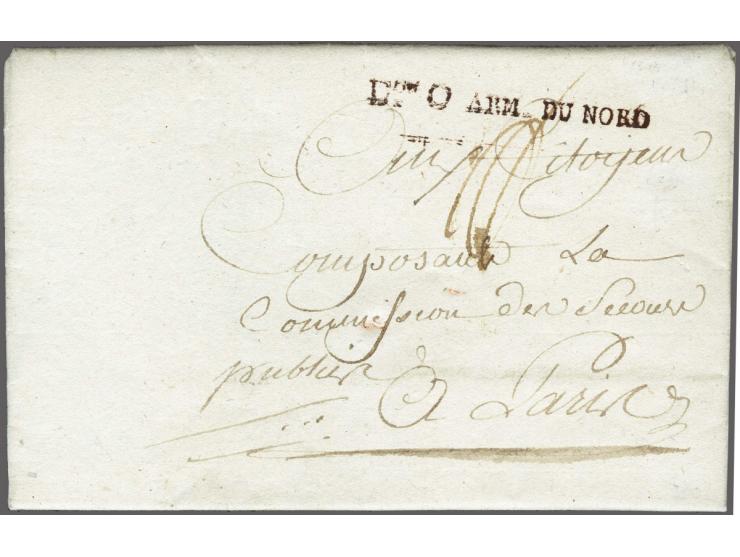 Don O ARM. DU NORD
Aux Citoyens
Composant La
Commission des Secours
publics
à Paris